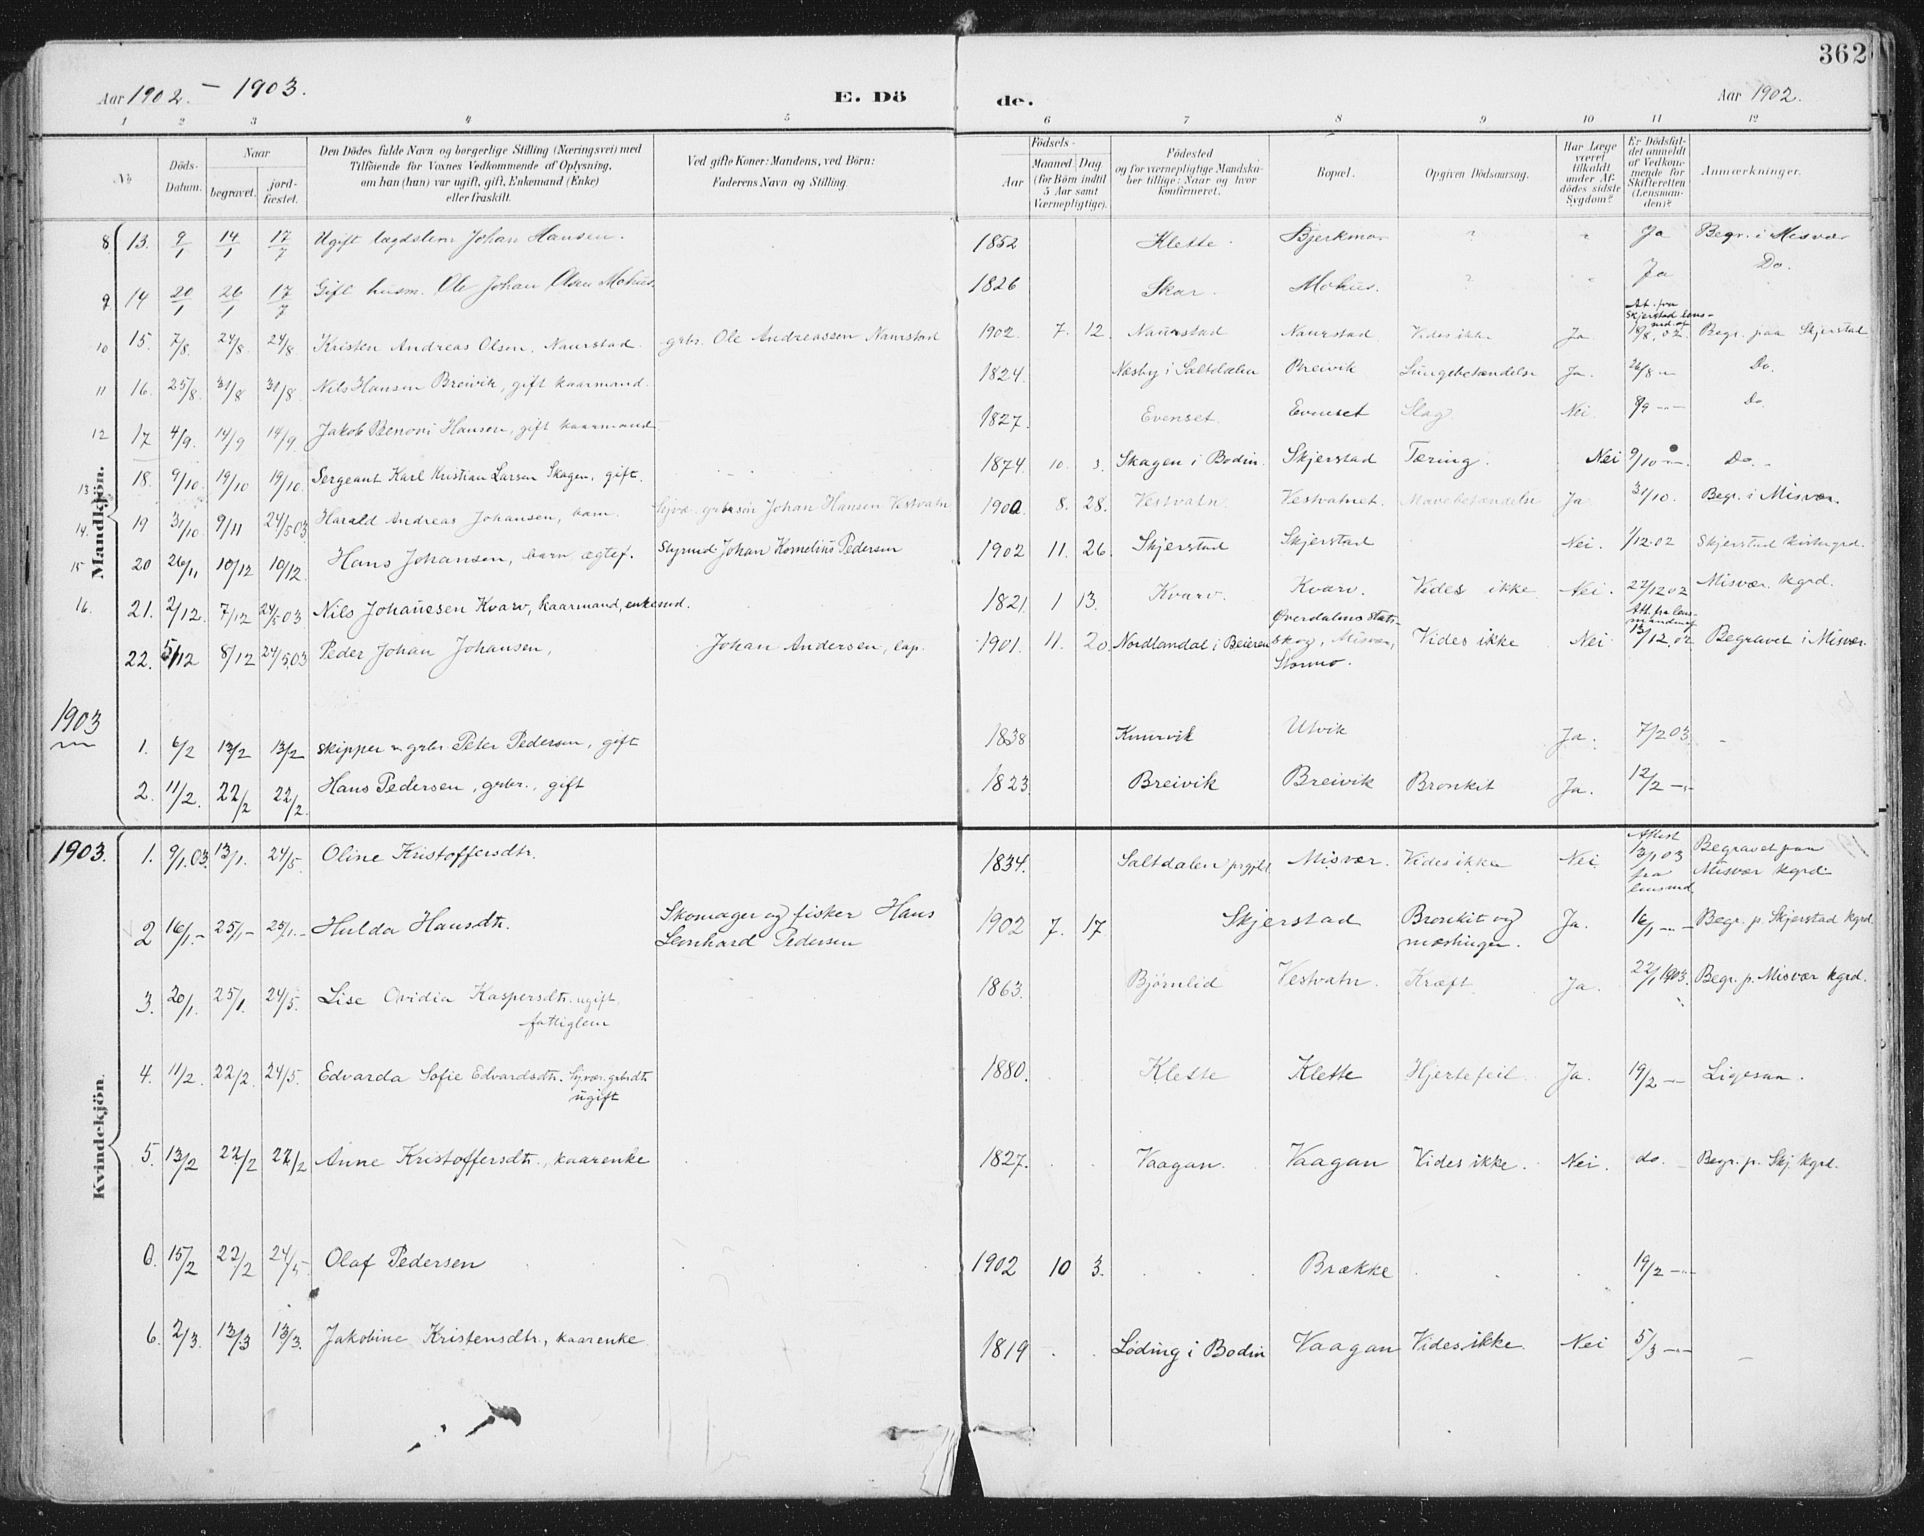 362
Aar 1902. – 1903.
E. Dö
de.
Aar 1902.
1 2 3 4 5 6 7 8 9 10 11 12
No
Döds-Datum.
Naar
begravet.
jord-fæstet.
Den Dödes fulde Navn og borgerlige Stilling (Næringsvei) med
Tilföiende for Voxnes Vedkommende af Oplysning,
om han (hun) var ugift, gift, Enkemand (Enke)
eller fraskilt.
Ved gifte Koner: Mandens, ved Börn:
Faderens Navn og Stilling.
Födsels-
Aar
Maaned Dag
(for Börn indtil
5 Aar samt
Værnepligtige).
Födested
og for værnepligtige Mandska-
ber tillige: Naar og hvor
konfirmeret.
Bopæl.
Opgiven Dödsaarsag.
Har Læge
været
tilkaldt
under Af-
dödes sidste
Sygdom?
Er Dödsfal-
det anmeldt
af Vedkom-
mende for
Skifteretten
(Lensman-
den)?
Anmærkninger.
Mandkjön.
8 13. 9/1 14/1 17/7 Ugift lægdslem Johan Hansen. 1852 Klette. Bjerkmo ? " Ja Begr. i Misvær
9 14 20/1 26/1 17/7 Gift husm. Ole Johan Olsen Mohus. 1826 Skar. Mohus. ? " Ja Do.
10 15. 7/8. 24/8. 24/8 Kristen Andreas Olsen, Naurstad. grbr. Ole Andreassen Naurstad 1902. 7. 12. Naurstad Naurstad Vides ikke Ja At. fra Skjerstad lensmd. af 18/8.02. Begr. paa Skjerstad
11 16. 25/8. 31/8 31/8. Nils Hansen Breivik, gift kaarmand. 1824. Næsby i Saltdalen Breivik Lungebetændelse Ja. 26/8 -"- Do.
12 17 4/9. 14/9 14/9. Jakob Benoni Hansen, gift kaarmand 1827. Evenset. Evenset Slag. Nei. 8/9 -"- Do
13 18. 9/10. 19/10 19/10. Sergeant Karl Kristian Larsen Skagen, gift. 1874. 10. 3. Skagen i Bodin. Skjerstad Tæring. Nei 9/10 -"- Do.
14. 19 31/10. 9/11 24/5 03 Harald Andreas Johansen, barn. grbrsøn Johan Hansen Vestvatn 1900. 8. 28. Vestvatn Vestvatnet. Mavebetændelse Ja. 31/10. Begr. i Misvær.
15 20 26/11 10/12 10/12. Hans Johansen, barn ægtef. Styrmd. Johan Kornelius Pedersen 1902 11. 26. Skjerstad Skjerstad Nei. 1/12.02 Skjerstad kirkegrd.
16. 21. 2/12. 7/12 24/5 03 Nils Johanesen Kvarv, kaarmand, enkemd. 1821. 1 13. Kvarv. Kvarv. Vides ikke Nei. 27/12 02 Misvær. kgrd.
22. 5/12 8/12 24/5 03 Peder Johan Johansen, Johan Andersen, lap. 1901. 11. 20. Nordlandal i Beieren Øverdalens stats-
skog, Misvær,
Stormo. Vides ikke Nei Att. fra lensmanden af 13/12.02 Begravet i Misvær
1903
1. 6/2 13/2 13/2 Skipper og grbr Peter Pedersen, gift 1838 Knurvik Utvik Ja. 7/2 03.
2. 11/2. 22/2 22/2. Hans Pedersen, grbr., gift 1823. Breivik Breivik Bronkit Ja. 12/2 -"-
1903.
Kvindekjön.
1. 9/1.03. 13/1. 24/5. Oline Kristoffersdtr. 1834. Saltdalen prgjld. Misvær. Vides ikke Nei. Attest 13/1 03 fra lensmd Begravet paa
Misvær kgrd.
2 16/1.- 25/1.- 25/1.- Hulda Hansdtr. Skomager og fisker Hans
Leonhard Pedersen 1902 7. 17 Skjerstad Bronkit og
mæslinger. Ja. 16/1 -"- Begr. p. Skjerstad kgrd.
3. 20/1. 25/1. 24/5. Lise Ovidia Kaspersdtr. ugift.
fattiglem 1863. Bjørnlid Vestvatn. Kræft Ja. 22/1 1903. Begr. p. Misvær kgrd.
4. 11/2. 22/2. 24/5. Edvarda Sofie Edvardsdtr. grbrdtr
ugift 1880. Klette Klette Hjertefeil. Ja. 19/2 -"- Ligesaa.
5. 13/2 22/2 22/2 Anne Kristoffersdtr., kaarenke 1827. Vaagan. Vaagan Vides ikke. Nei. do. Begr. p. Skj. kgrd.
0. 15/2 22/2 24/5 Olaf Pedersen 1902 10 3. Brække 19/2 -"-
6. 2/3. 13/3 13/3. Jakobine Kristensdtr., kaarenke 1819 Løding i Bodin Vaagan Vides ikke. Nei 5/3 -"- –